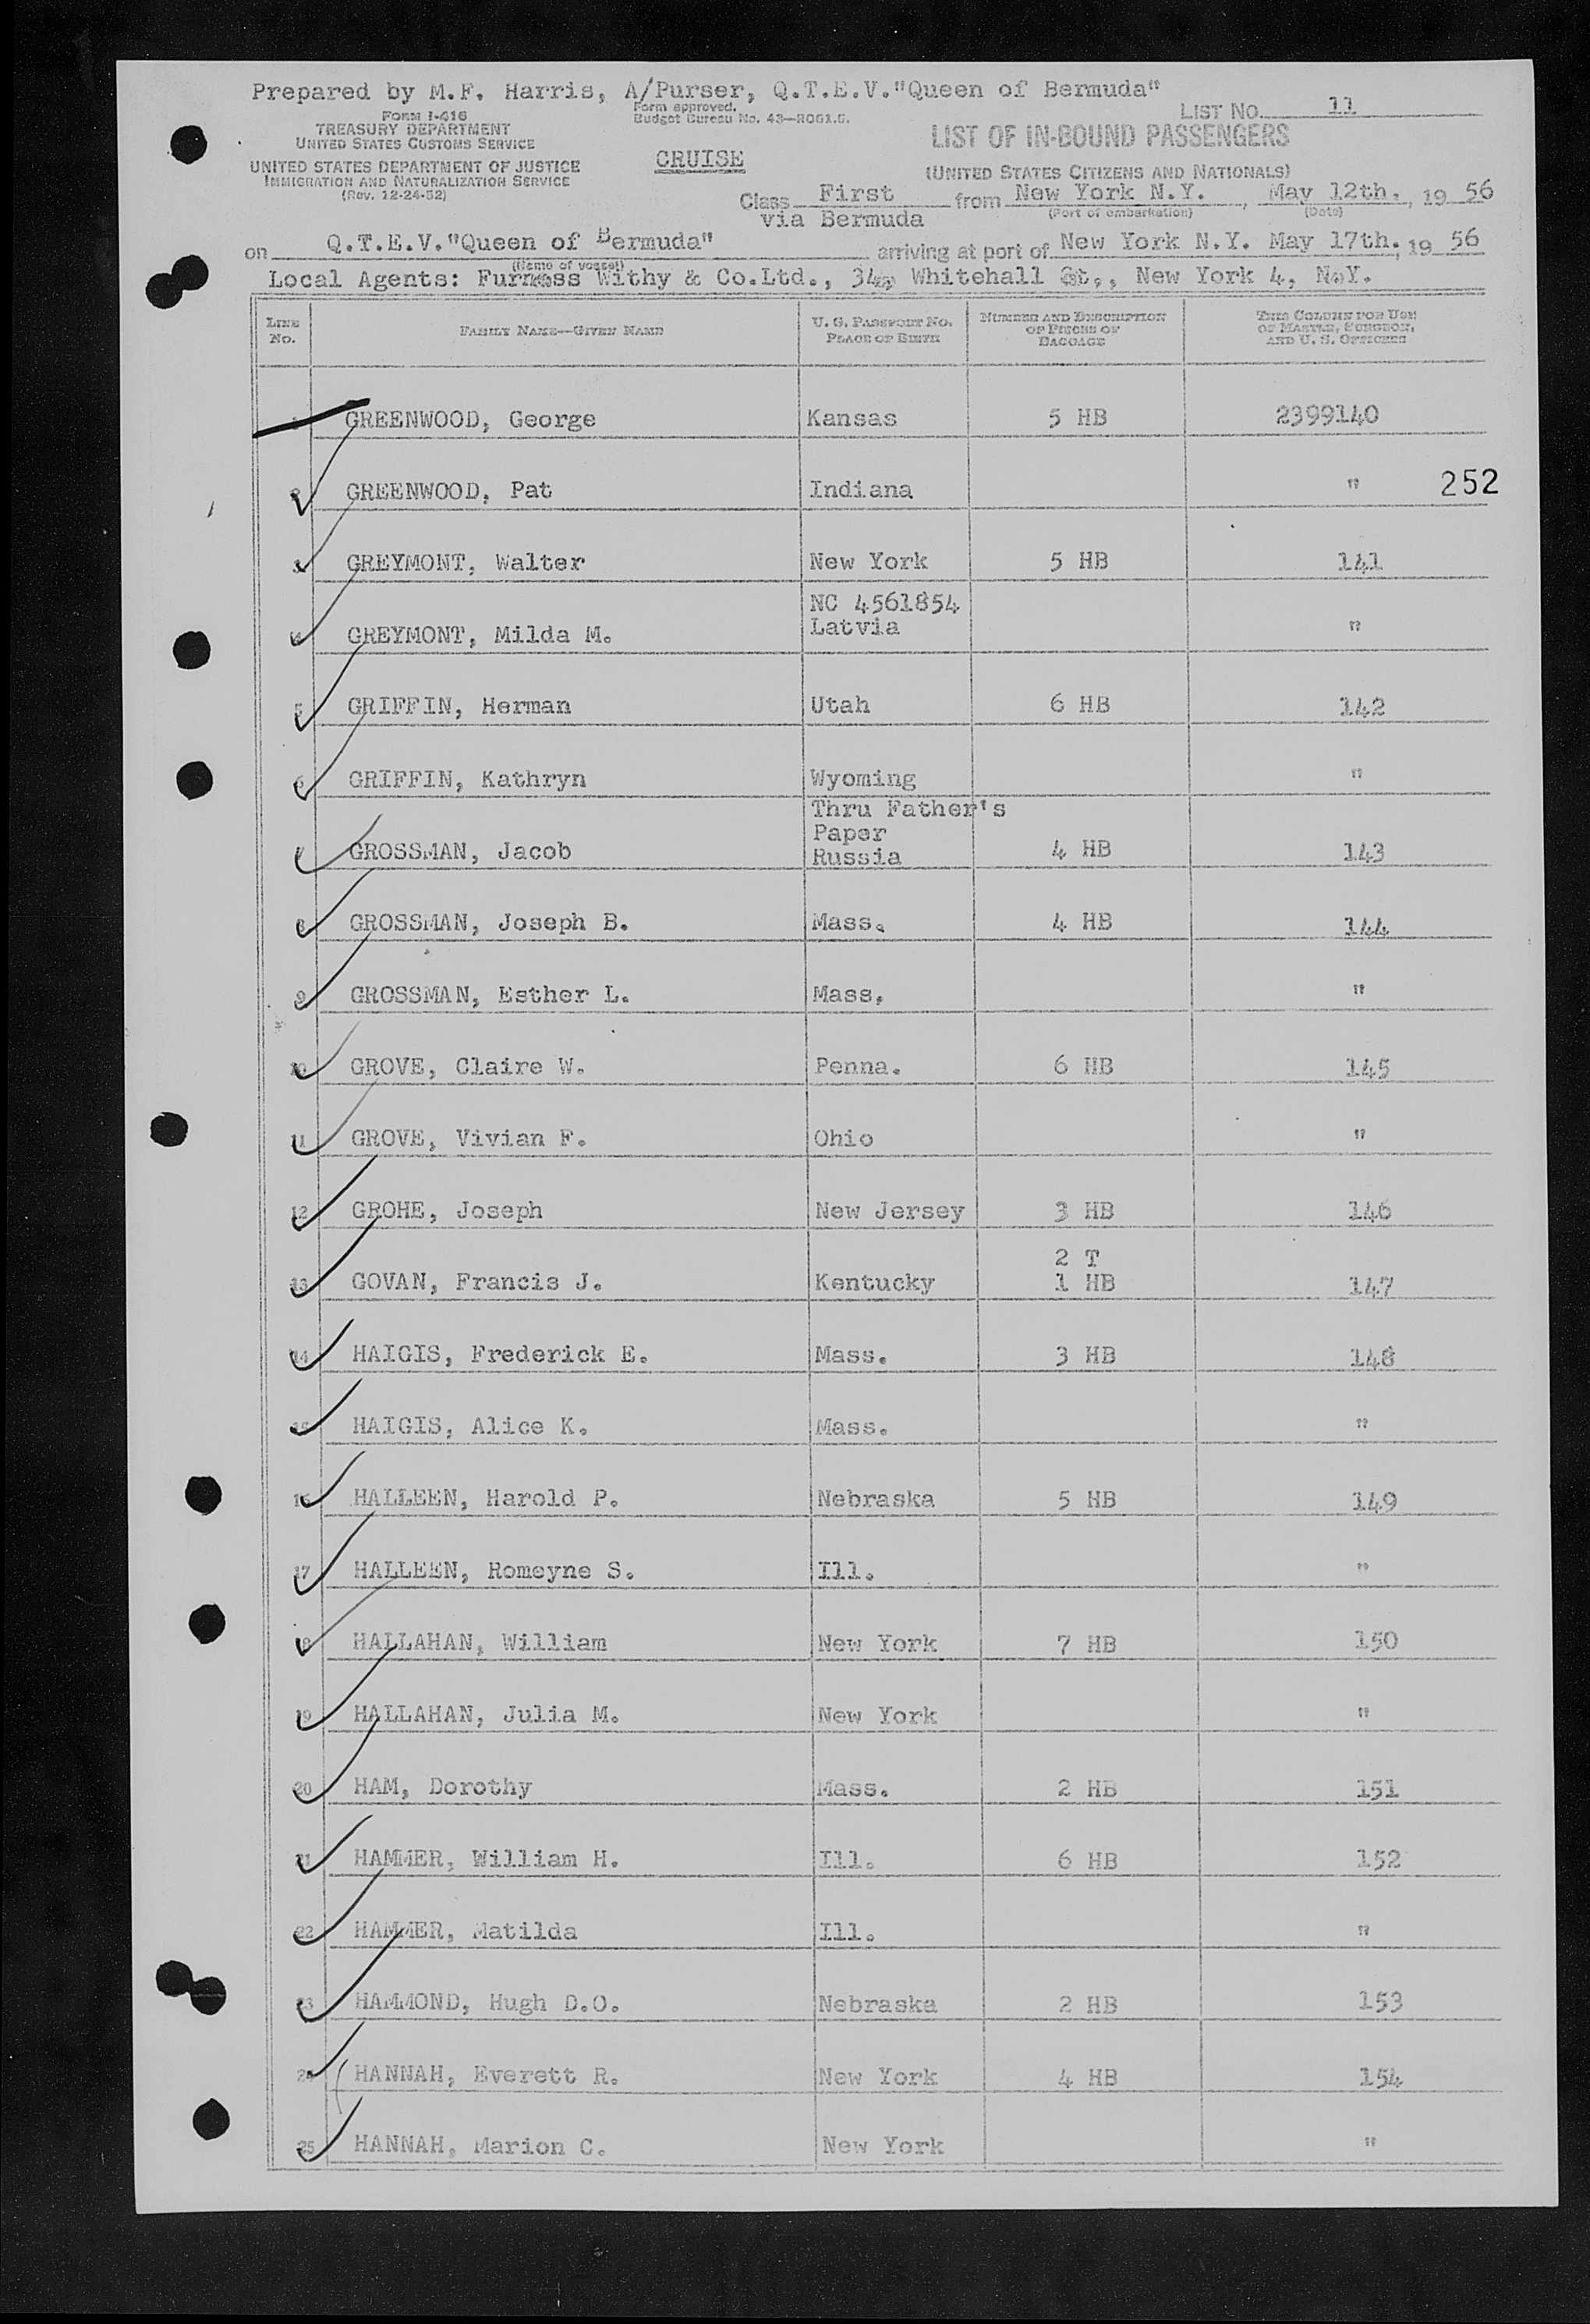 Prepared by M.F. Harris, A/Purser, Q.T.E.V."Queen of Bermuda"
Form approved.
Budget Bureau No. 43—R061.5.
LIST No. 11
FORM I-416
TREASURY DEPARTMENT
UNITED STATES CUSTOMS SERVICE
UNITED STATES DEPARTMENT OF JUSTICE
IMMIGRATION AND NATURALIZATION SERVICE
(Rev. 12-24-52)
CRUISE
LIST OF IN-BOUND PASSENGERS
(UNITED STATES CITIZENS AND NATIONALS)
Class First from New York N.Y. , May 12th. , 19 56
via Bermuda (Port of embarkation) (Date)
on Q.T.E.V."Queen of Bermuda" arriving at port of New York N.Y. May 17th. , 19 56
(Name of vessel)
Local Agents: Furness Withy & Co.Ltd., 34, Whitehall St., New York 4, N.Y.
LINE No. FAMILY NAME—GIVEN NAME U. S. PASSPORT NO. PLACE OF BIRTH NUMBER AND DESCRIPTION OF PIECES OF BAGGAGE THIS COLUMN FOR USE OF MASTER, SURGEON, AND U. S. OFFICERS
1 GREENWOOD, George Kansas 5 HB 2399140
2 GREENWOOD, Pat Indiana " 252
3 GREYMONT, Walter New York 5 HB 141
NC 4561854
4 GREYMONT, Milda M. Latvia "
5 GRIFFIN, Herman Utah 6 HB 142
6 GRIFFIN, Kathryn Wyoming "
Thru Father's
Paper
7 GROSSMAN, Jacob Russia 4 HB 143
8 GROSSMAN, Joseph B. Mass. 4 HB 144
9 GROSSMAN, Esther L. Mass. "
10 GROVE, Claire W. Penna. 6 HB 145
11 GROVE, Vivian F. Ohio "
12 GROHE, Joseph New Jersey 3 HB 146
2 T
13 GOVAN, Francis J. Kentucky 1 HB 147
14 HAIGIS, Frederick E. Mass. 3 HB 148
15 HAIGIS, Alice K. Mass. "
16 HALLEEN, Harold P. Nebraska 5 HB 149
17 HALLEEN, Romeyne S. Ill. "
18 HALLAHAN, William New York 7 HB 150
19 HALLAHAN, Julia M. New York "
20 HAM, Dorothy Mass. 2 HB 151
21 HAMMER, William H. Ill. 6 HB 152
22 HAMMER, Matilda Ill. "
23 HAMMOND, Hugh D.O. Nebraska 2 HB 153
24 HANNAH, Everett R. New York 4 HB 154
25 HANNAH, Marion C. New York "